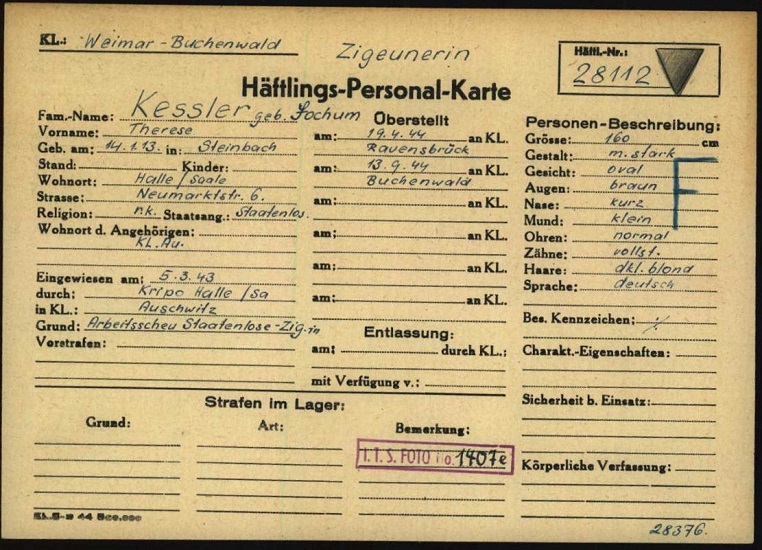 KL.: Weimar-Buchenwald
Zigeunerin
Häftl.-Nr.:
28112
Häftlings-Personal-Karte
Fam.-Name: Kessler geb. Jochum
Vorname: Therese
Geb. am: 14.1.13. in: Steinbach
Stand: Kinder:
Wohnort: Halle/Saale
Strasse: Neumarktstr. 6.
Religion: r.k. Staatsang.: Staatenlos.
Wohnort d. Angehörigen:
KL. Au.
Eingewiesen am: 5.3.43
durch: Kripo Halle/Sa
in KL.: Auschwitz
Grund: Arbeitsscheu Staatenlose-Zig.in
Vorstrafen:
Überstellt
am: 19.4.44 an KL.
Ravensbrück
am: 13.9.44 an KL.
Buchenwald
am: an KL.
am: an KL.
am: an KL.
am: an KL.
Entlassung:
am: durch KL.:
mit Verfügung v.:
Personen-Beschreibung:
Grösse: 160 cm
Gestalt: m. stark
Gesicht: oval
Augen: braun
Nase: kurz
Mund: klein
Ohren: normal
Zähne: vollst.
Haare: dkl. blond
Sprache: deutsch
F
Bes. Kennzeichen: ./.
Charakt.-Eigenschaften:
Sicherheit b. Einsatz:
Körperliche Verfassung:
Strafen im Lager:
Grund: Art: Bemerkung:
I.T.S. FOTO No. 1407e
28376.